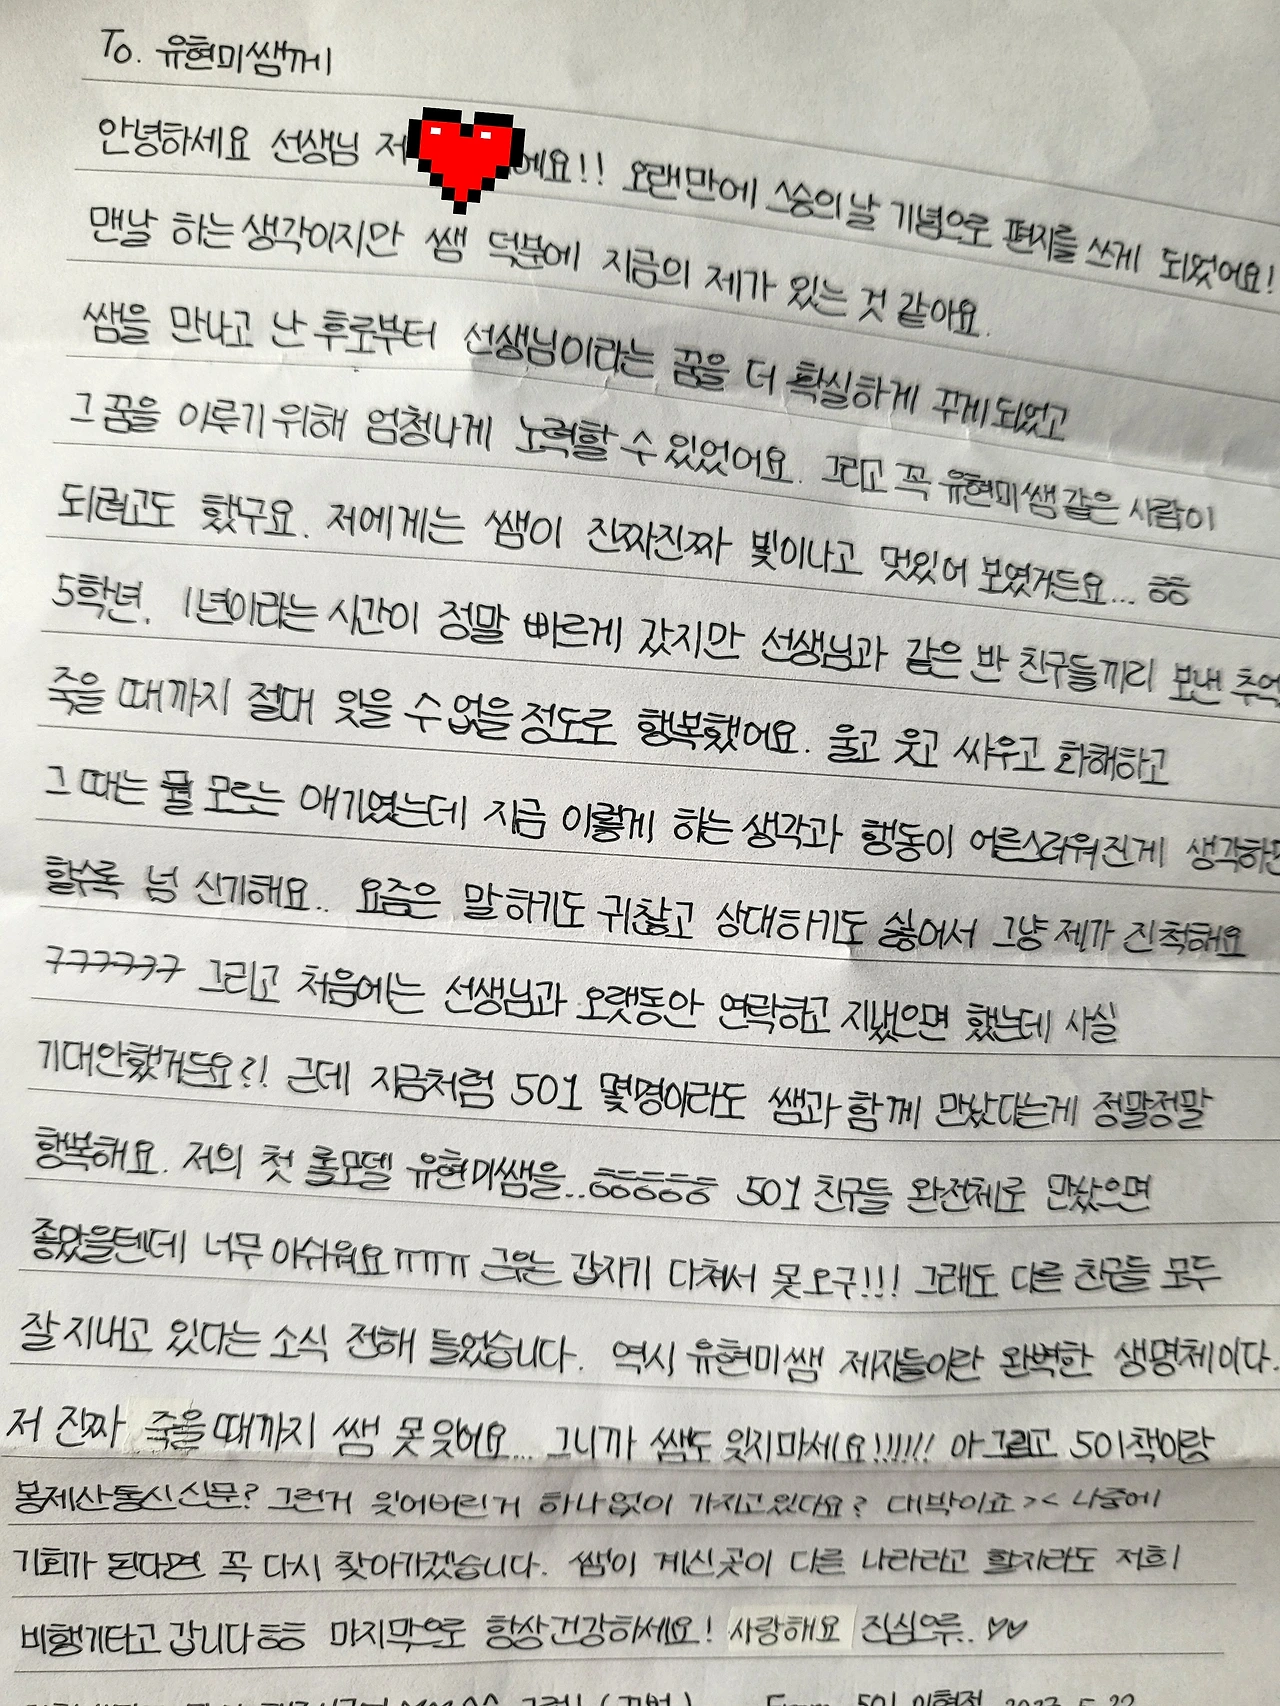 To. 유현미쌤께
안녕하세요 선생님 저 에요!! 오랜만에 스승의날 기념으로 편지를 쓰게 되었어요!
맨날 하는 생각이지만 쌤 덕분에 지금의 제가 있는 것 같아요.
쌤을 만나고 난 후로부터 선생님이라는 꿈을 더 확실하게 꾸게 되었고
그 꿈을 이루기 위해 엄청나게 노력할 수 있었어요. 그리고 꼭 유현미쌤 같은 사람이
되려고도 했구요. 저에게는 쌤이 진짜진짜 빛이나고 멋있어 보였거든요... ㅎㅎ
5학년. 1년이라는 시간이 정말 빠르게 갔지만 선생님과 같은 반 친구들끼리 보낸 추억
죽을 때까지 절대 잊을 수 없을 정도로 행복했어요. 울고 웃고 싸우고 화해하고
그 때는 뭘 모르는 애기였는데 지금 이렇게 하는 생각과 행동이 어른스러워진게 생각하면
할수록 넘 신기해요.. 요즘은 말하기도 귀찮고 상대하기도 싫어서 그냥 제가 진척해요
ㅋㅋㅋㅋㅋㅋ 그리고 처음에는 선생님과 오랫동안 연락하고 지냈으면 했는데 사실
기대안했거든요?! 근데 지금처럼 501 몇명이라도 쌤과 함께 만났다는게 정말정말
행복해요. 저의 첫 롤모델 유현미쌤을..ㅎㅎㅎㅎㅎ 501 친구들 완전체로 만났으면
좋았을텐데 너무 아쉬워요 ㅠㅠㅠ 갑자기 다쳐서 못오구!!! 그래도 다른 친구들 모두
잘 지내고 있다는 소식 전해 들었습니다. 역시 유현미쌤 제자들이란 완벽한 생명체이다.
저 진짜 죽을때까지 쌤 못 잊어요... 그니까 쌤도 잊지마세요!!!!!! 아 그리고 501책이랑
봉제산통신신문? 그런거 잊어버린거 하나없이 가지고있다요? 대박이죠>< 나중에
기회가 된다면 꼭 다시 찾아가겠습니다. 쌤이 계신곳이 다른 나라라고 할지라도 저희
비행기타고 갑니다ㅎㅎ 마지막으로 항상 건강하세요! 사랑해요 진심으루.. ♡♡
From 501